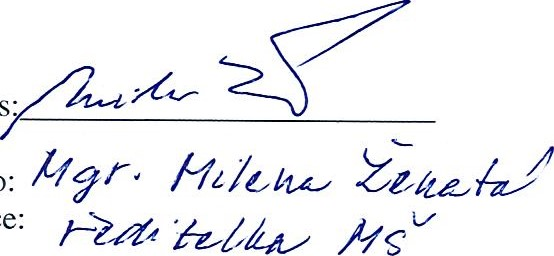 s:
o: Mgr. Milena Ženatá
ce: ředitelka MŠ